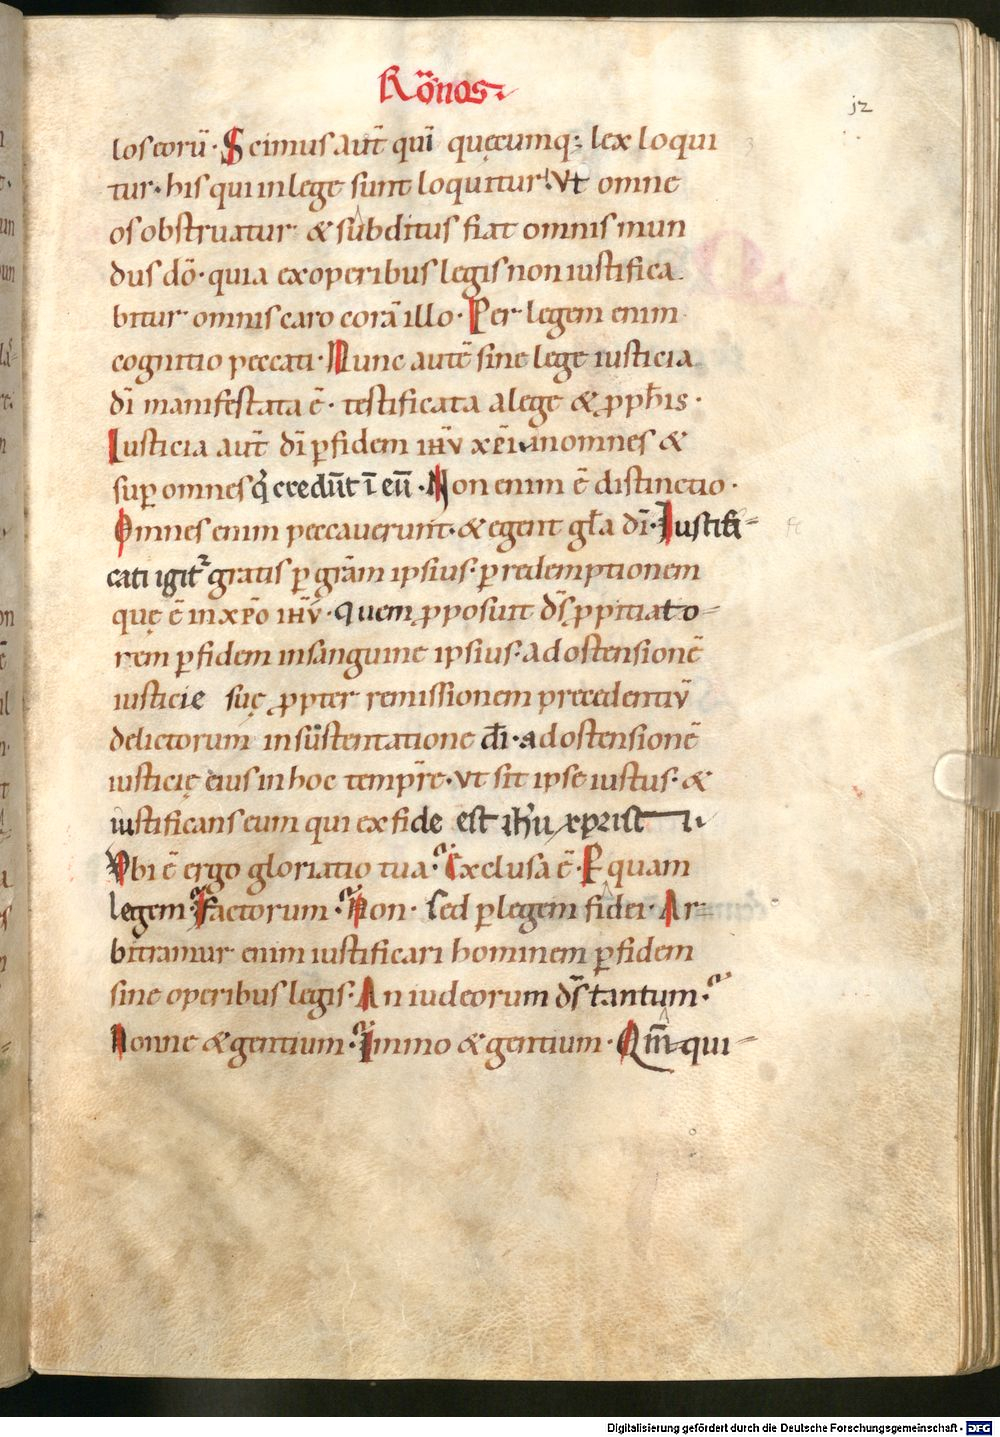 Rōnos
12
los eorū · Scimus aut̄ quī quęcumq; lex loqui
tur · his qui in lege sunt loquitur · Vt omne
os obstruatur & subditus fiat omnis mun
dus dō · quia ex operibus legis non iustifica
bitur omnis caro corā illo · Per legem enim
cognitio peccati · Nunc autē sine lege iusticia
dī manifestata ē · testificata a lege & ꝓph̄is ·
Iusticia aut̄ dī ꝑ fidem ih̄v xp̄i in omnes &
suꝑ omnes q̇ credūt ī eū · Non enim ē distinctio ·
Omnes enim peccauerunt · & egent gl̄a dī · Iustifi=
cati igit᷑ gratis ꝑ grām ipsius · ꝑ redemptionem
quę ē in xp̄o ih̄v · Quem ꝓposuit ds̄ ꝓpitiato=
rem ꝑ fidem in sanguine ipsius · ad ostensionē
iusticie suę ꝓpter remissionem precedentiv̄
delictorum in sustentatione dī · ad ostensionē
iusticię eius in hoc temp̄re · vt sit ipse iustus · &
iustificans eum qui ex fide est ih̄u xp̄rist i ·
Vbi ē ergo gloriatio tua · Exclusa ē · P quam
legem · Factorum · Non · Sed ꝑ legem fidei · Ar=
bitramur enim iustificari hominem ꝑ fidem
sine operibus legis · An iudeorum ds̄ tantum ·
Nonne & gentium · Immo & gentium · Qm̄ qui=
Digitalisierung gefördert durch die Deutsche Forschungsgemeinschaft - DFG